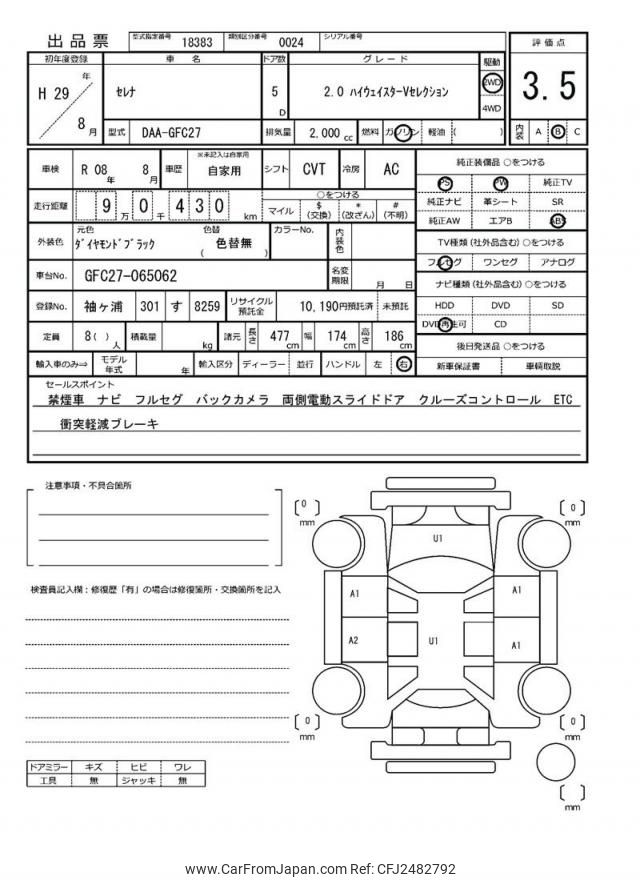 出品票 型式指定番号 18383 類別区分番号 0024 シリアル番号
初年度登録 車 名 ドア数 グレード 駆動 評価点
H 29 年 8 月 セレナ 5 D 2.0 ハイウェイスターVセレクション 2WD 4WD 3.5
型式 DAA-GFC27 排気量 2,000 cc 燃料 ガソリン 軽油 ( ) 内装 A B C
車検 R 08 年 8 月 車歴 ※未記入は自家用 自家用 シフト CVT 冷房 AC 純正装備品 ○をつける
PS PW 純正TV
走行距離 9 万 0 千 4 3 0 km ○をつける
マイル $ (交換) * (改ざん) # (不明)
純正ナビ 革シート SR
純正AW エアB ABS
外装色 元色 ダイヤモンドブラック 色替 ( 色替無 ) カラーNo. 内装色
TV種類 (社外品含む) ○をつける
フルセグ ワンセグ アナログ
車台No. GFC27-065062 名変期限 月 日
ナビ種類 (社外品含む) ○をつける
登録No. 袖ヶ浦 301 す 8259 リサイクル預託金 10,190円預託済 未預託
HDD DVD SD
DVD再生可 CD
定員 8( ) 人 積載量 kg 諸元 長さ 477 cm 幅 174 cm 高さ 186 cm
後日発送品 ○をつける
輸入車のみ⇒ モデル年式 年 輸入区分 ディーラー 並行 ハンドル 左 右
新車保証書 車輌取説
セールスポイント
禁煙車 ナビ フルセグ バックカメラ 両側電動スライドドア クルーズコントロール ETC
衝突軽減ブレーキ
注意事項・不具合箇所
検査員記入欄：修復歴「有」の場合は修復箇所・交換箇所を記入
[ 0 ] mm
[ 0 ] mm
U1
A1
A1
A2
U1
A1
[ 0 ] mm
[ 0 ] mm
[ ] mm
ドアミラー キズ ヒビ ワレ
工具 無 ジャッキ 無
www.CarFromJapan.com Ref: CFJ2482792